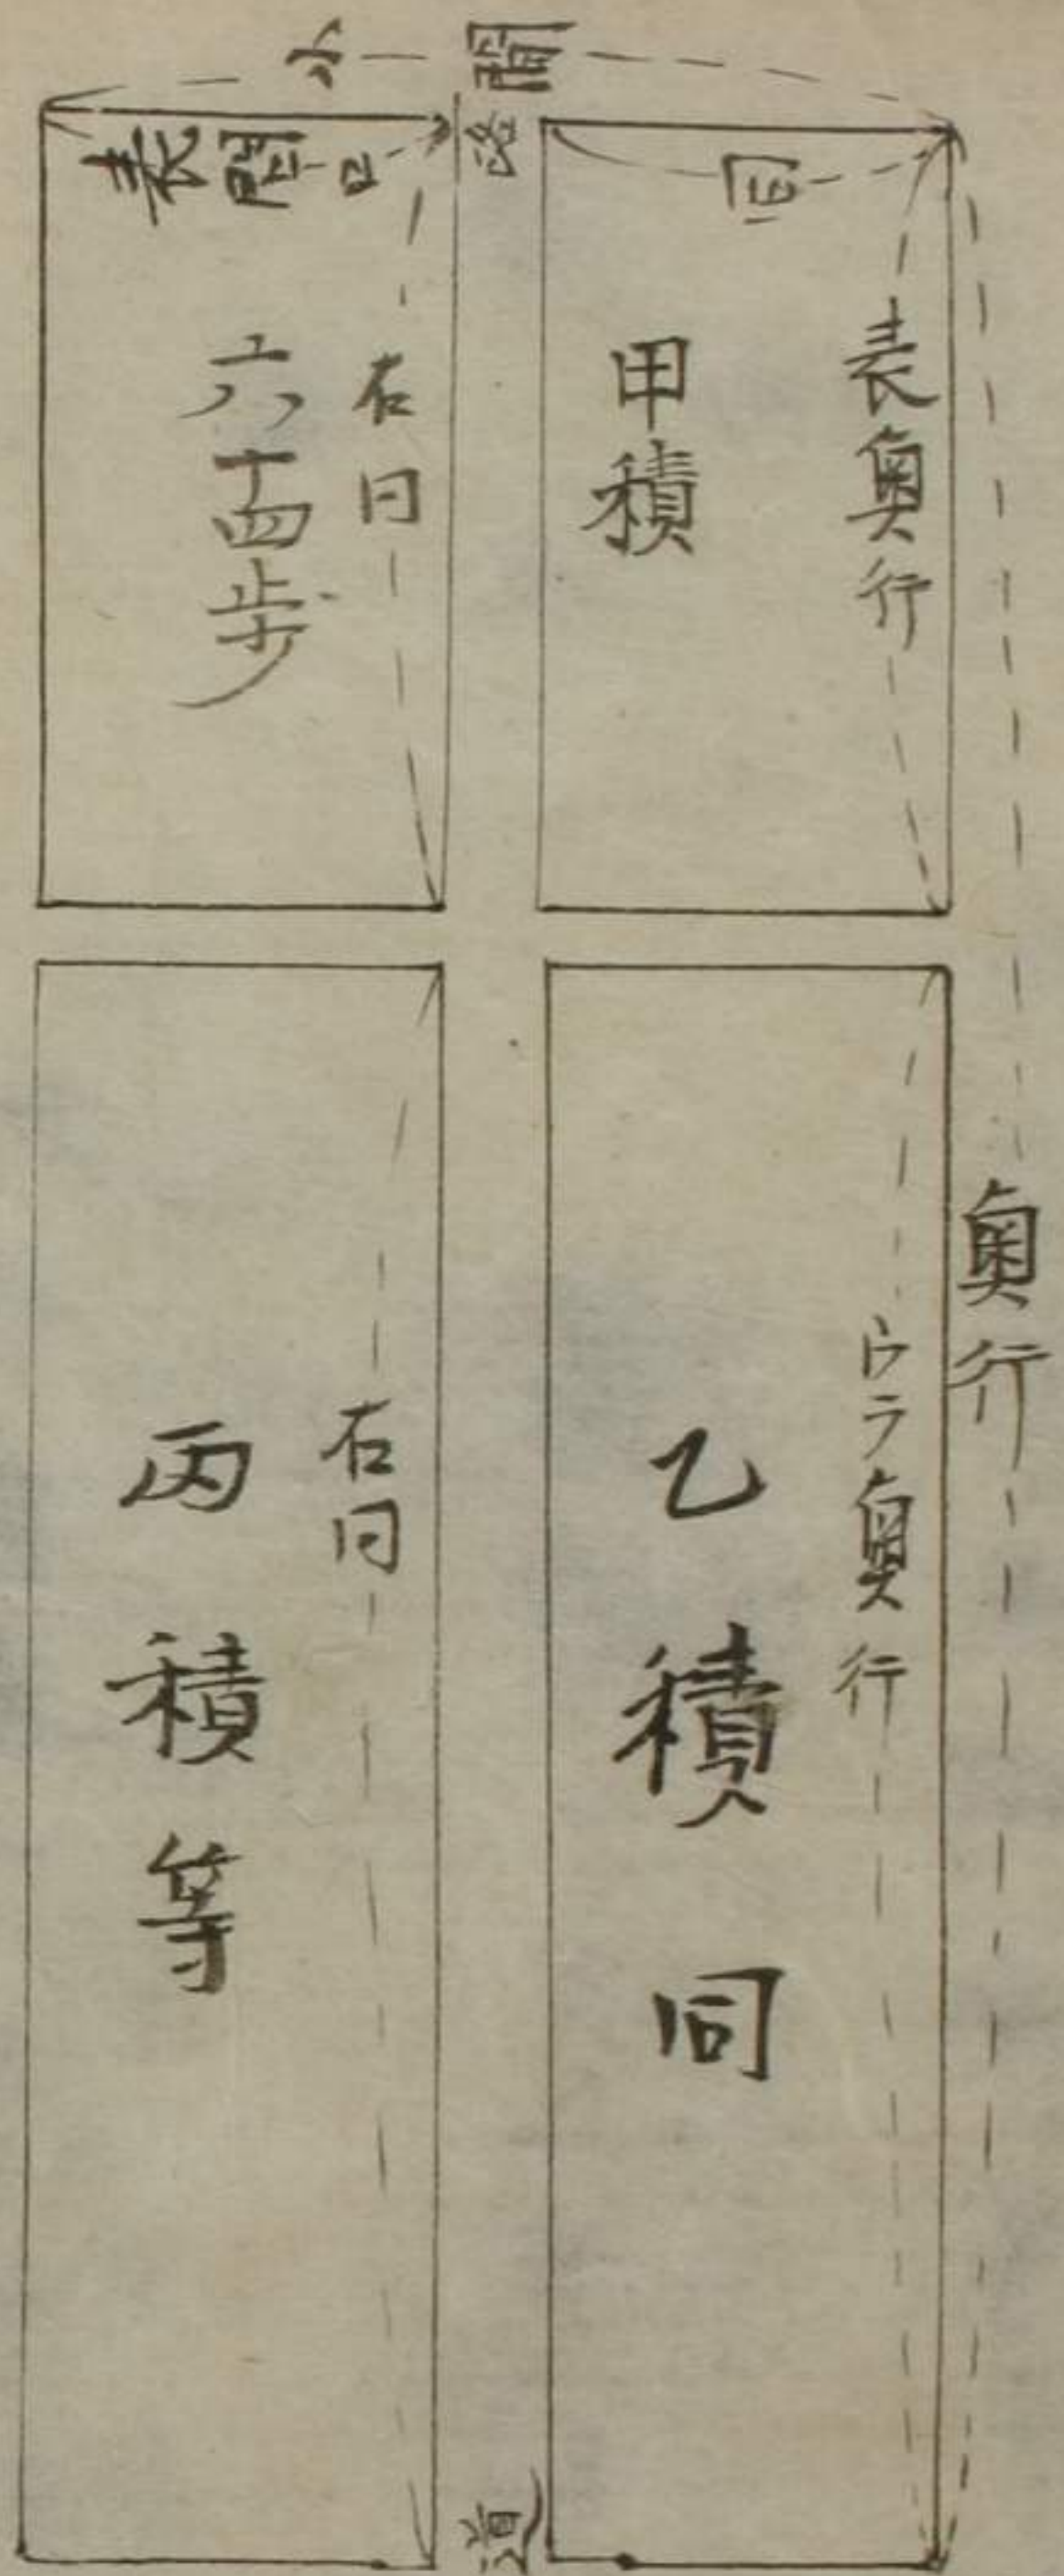 六間
同
路
表間口
表奥行
甲積
右同
六十四歩
奥行
ウラ奥行
乙積同
右同
丙積等
道